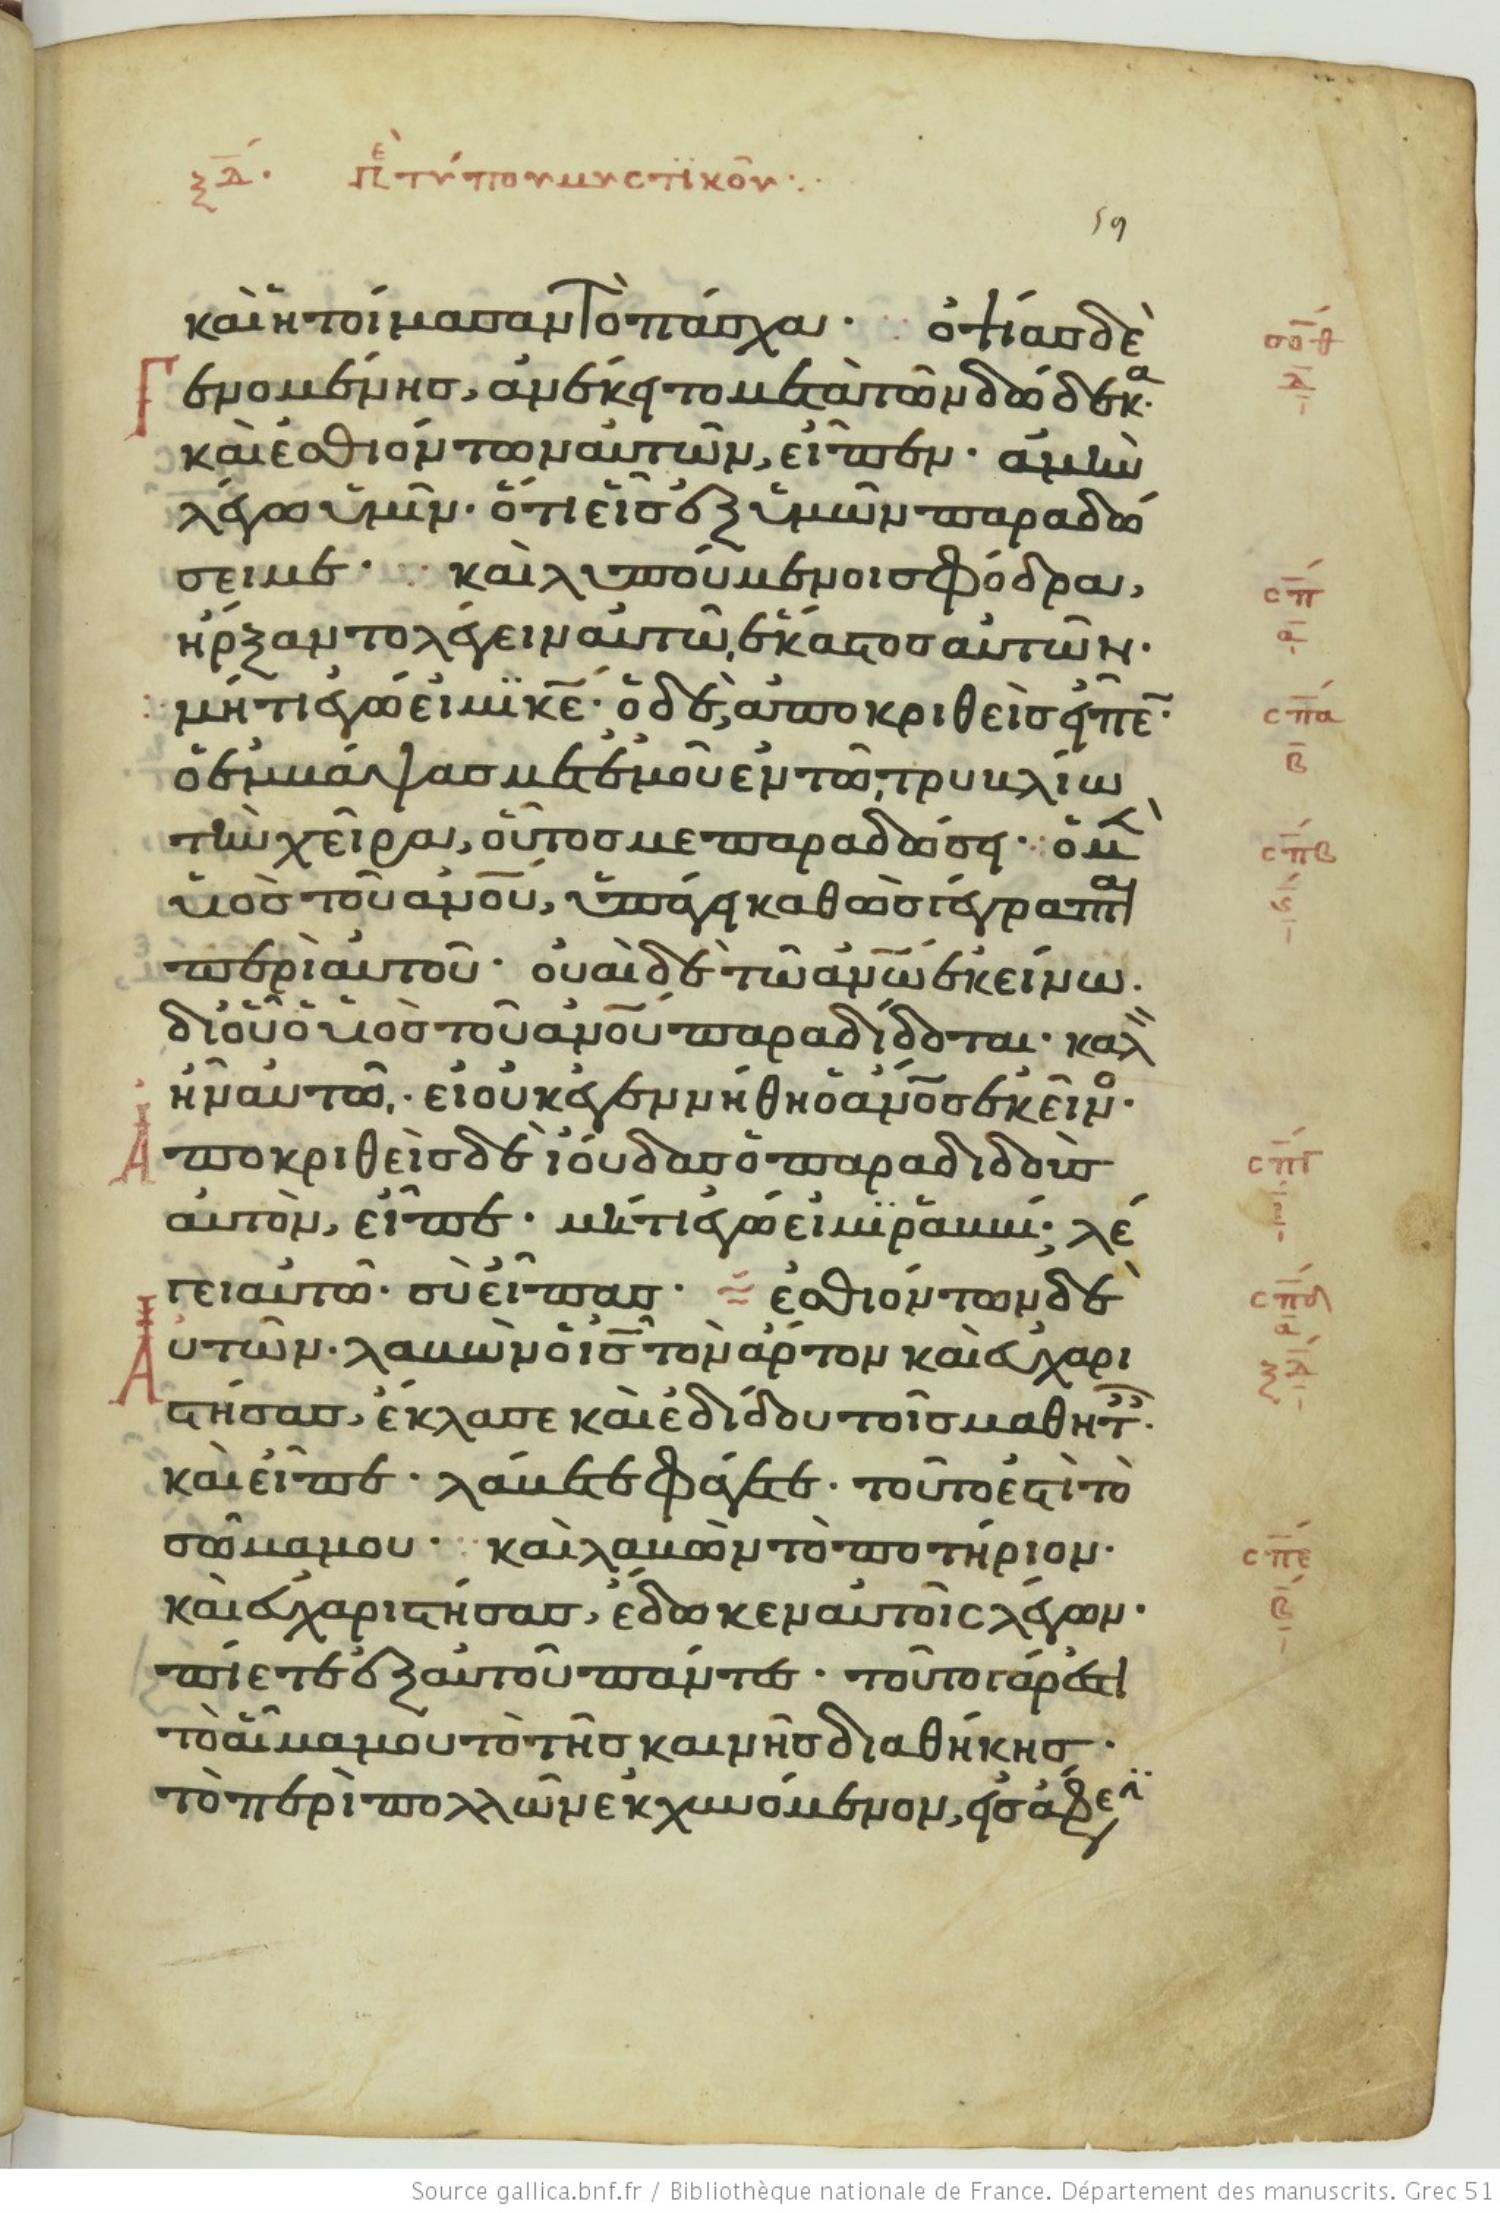 ξδ΄· πε τύπου μυστϊκοῦ·
59
καὶ ἡτοίμασαν Τὸ πάσχα· ὀψίας δὲ
Γ ενομένης, ἀνέκειτο μετὰ τῶν δώδεκα·
καὶ ἐσθιόντων αὐτῶν, εἶπεν· ἀμὴν
λέγω ὑμῖν· ὅτι εἷς ἐξ ὑμῶν παραδώ
σει με· καὶ λυπούμενοι σφόδρα,
ἤρξαντο λέγειν αὐτῶ, ἕκαστος αὐτῶν·
μήτι ἐγώ εἰμϊ κε· ὁ δὲ, ἀποκριθεὶς εἶπε·
ὁ ἐμβάψας μετ ἐμοῦ ἐν τῶ τρυβλίω
τὴν χεῖρα, οὗτος με παραδώσει· ὁ μὲν
υἱὸς τοῦ ανου, ὑπάγει καθὼς γέγραπται
περὶ αὐτοῦ· οὐαὶ δὲ τῶ ανω ἐκείνω·
δι οὗ ὁ υἱὸς τοῦ ανου παραδίδοται· καλὸν
ἦν αὐτῶ· εἰ οὐκ ἐγεννήθη ὁ ανος ἐκεῖνος·
Ἀ ποκριθεὶς δὲ ἰούδας ὁ παραδιδοὺς
αὐτὸν, εἶπε· μήτι ἐγώ εἰμϊ ῥαββί· λέ
γει αὐτῶ· σὺ εἶπας· ἐσθιόντων δὲ
Ἀ υτῶν· λαβὼν ὁ ις τὸν ἄρτον καὶ εὐχαρι
στήσας, ἔκλασε καὶ ἐδίδου τοῖς μαθητ·
καὶ εἶπε· λάβετε φάγετε· τοῦτο ἐστὶ τὸ
σῶμα μου· καὶ λαβὼν τὸ ποτήριον·
καὶ εὐχαριστήσας, ἔδωκεν αὐτοῖς λέγων·
πίετε ἐξ αὐτοῦ πάντες· τοῦτο γάρ ἐστι
τὸ αἷμα μου τὸ τῆς καινῆς διαθήκης·
τὸ περὶ πολλῶν ἐκχυνόμενον, εἰς ἄφεσι
σοθ
δ
σπ
α
σπα
β
σπβ
ς
σπγ
ι
σπδ
α
ξδ
σπε
β
Source gallica.bnf.fr / Bibliothèque nationale de France. Département des manuscrits. Grec 51